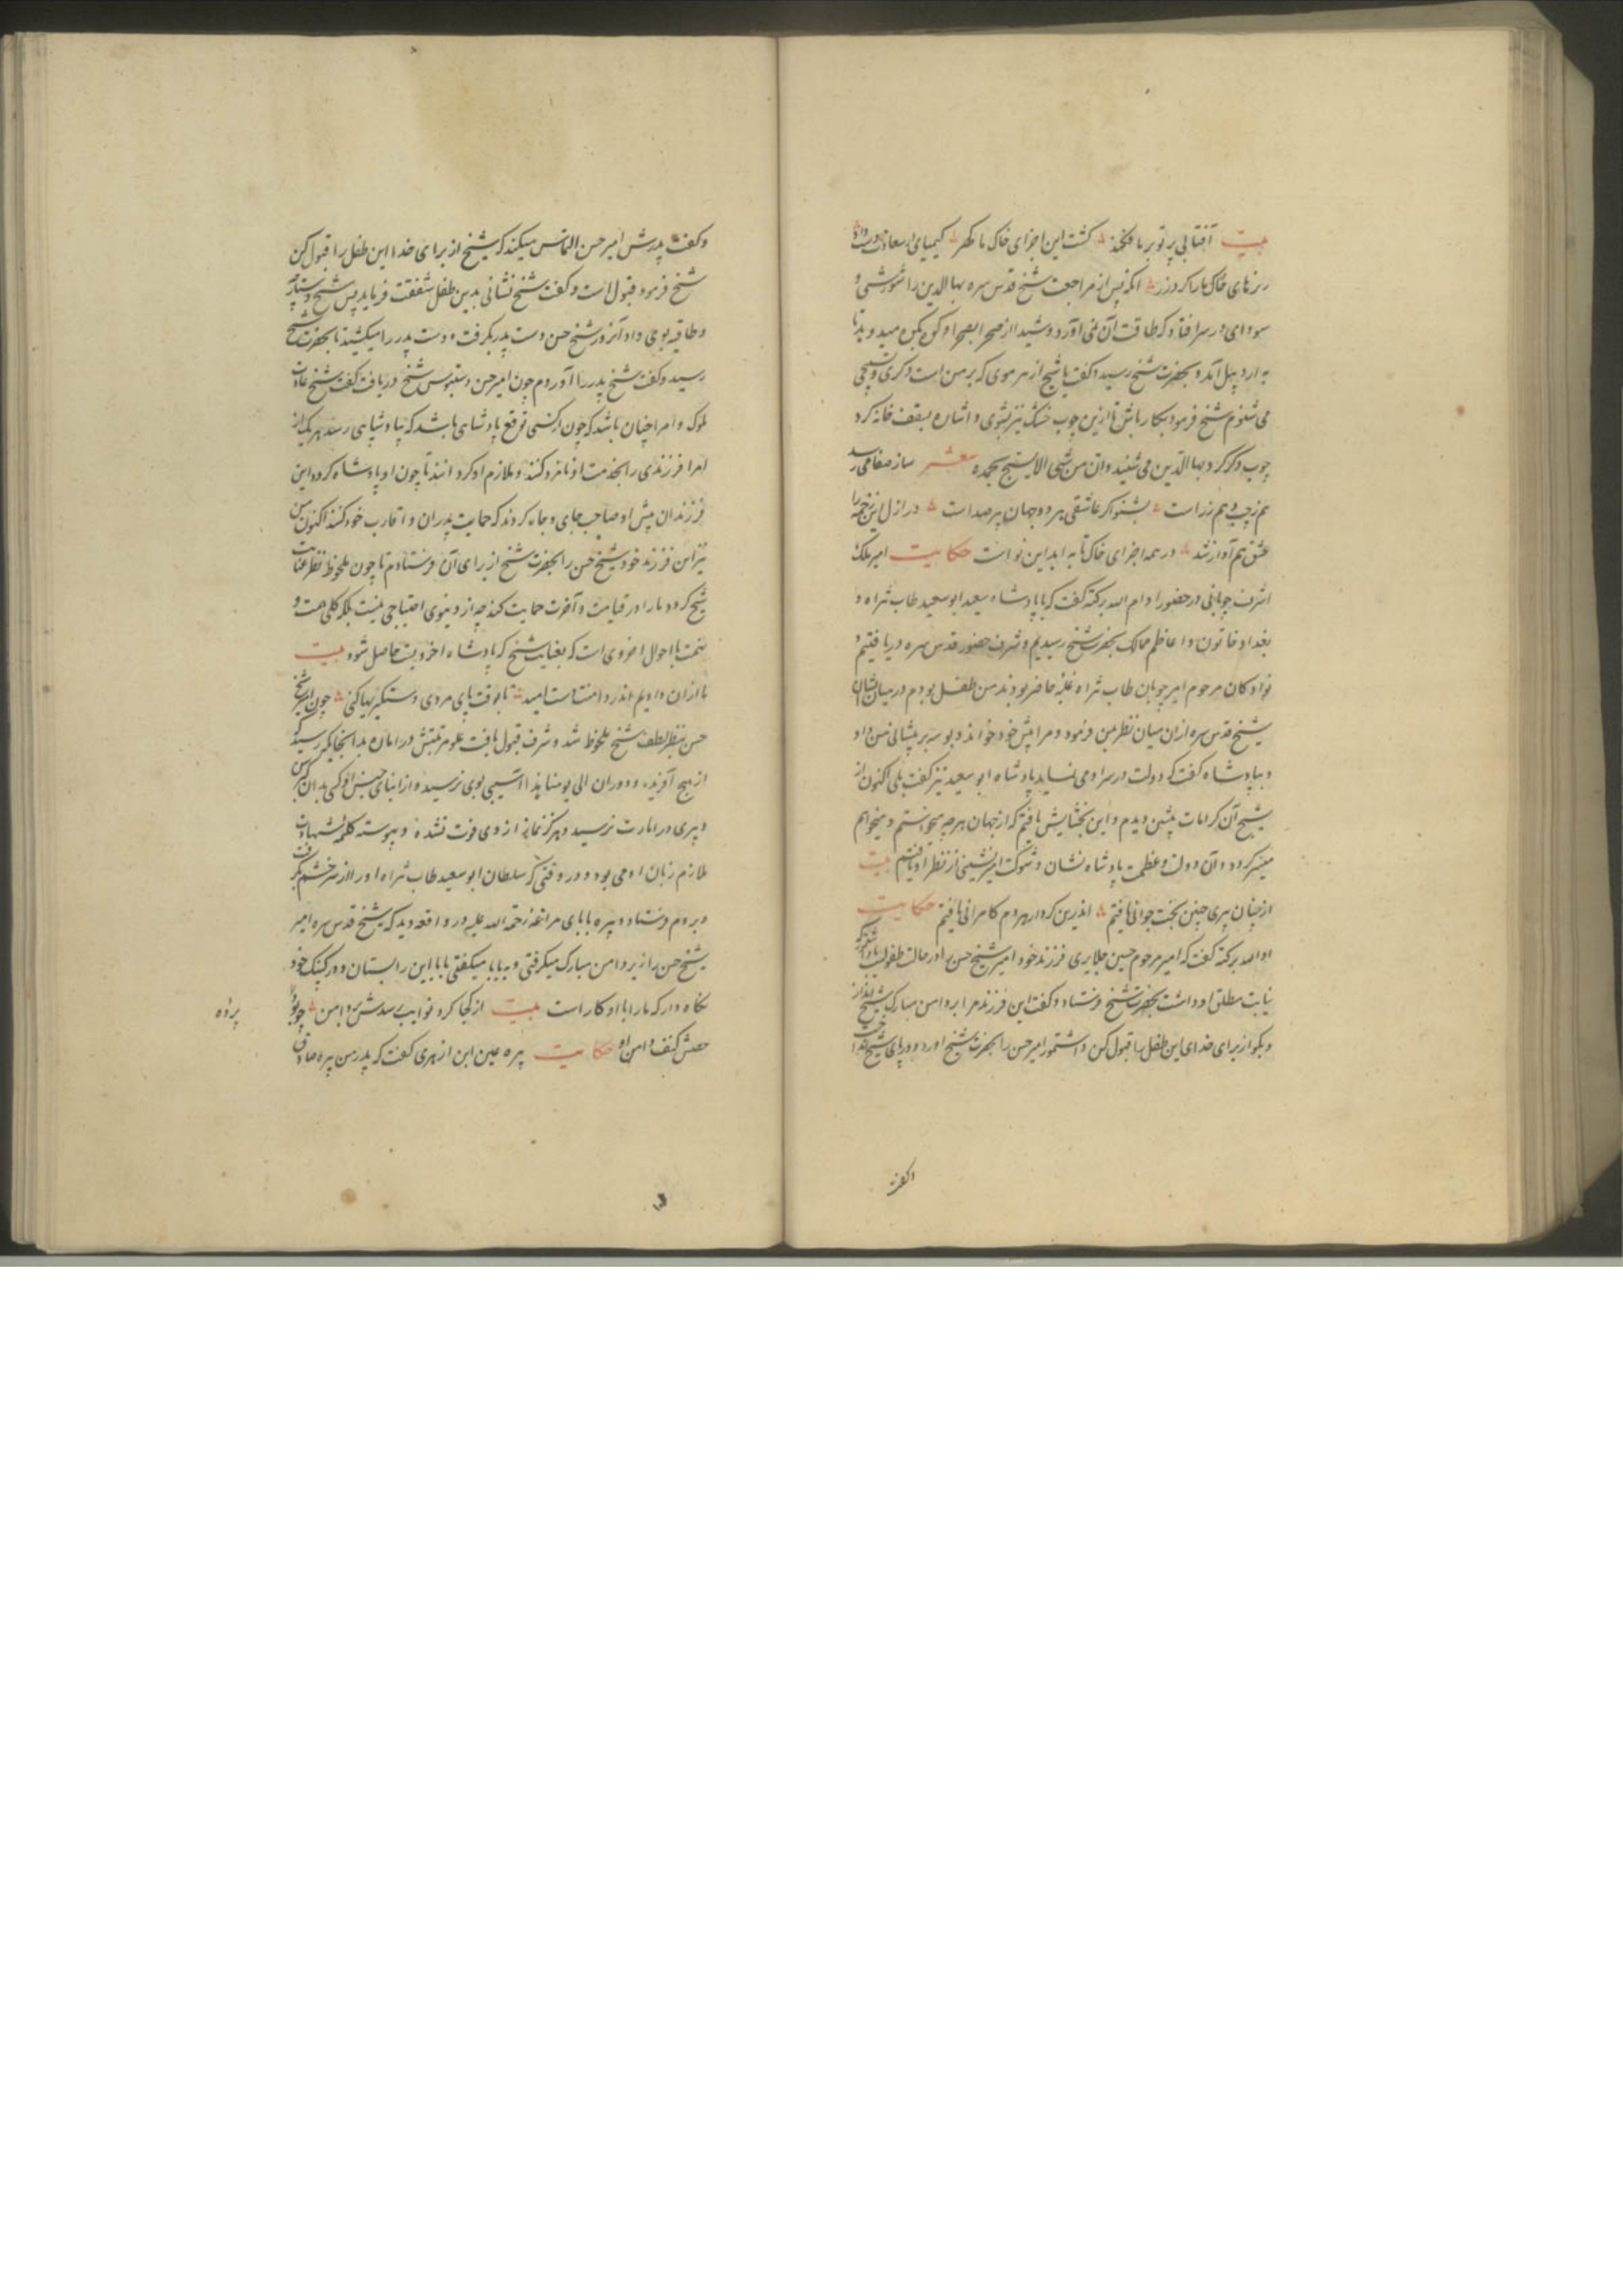 بیت آفتابی پرتو بر ما فکند ؞ گشت این اجزای خاک ما گهر ؞ کیمیای سعادت
ریزهای خاک ما را کرد زر ؞ انکه پس از مراجعت شیخ قدس سره بهاالدین را شورشی و
سودای در سر افتاد که طاقت آن نمی آورد و شیدا از صحرا بصحرا و کوه بکوه میدوید تا
به اردبیل آمد و بحضرت شیخ رسید و کفت یا شیخ از هر موی که بر من است ذکری و تسبیحی
می شنوم شیخ فرمود بکار باش تا ازین چوب خشک نیز بشنوی و اشاره بسقف خانه کرد
چوب ذکر کرد بهاالدین می شنید وان من شی الا یسبح بحمده شعر ساز صفا می رسد
هم زچپ و هم ز راست ؞ بشنو اکر عاشقی هر دو جهان پر صداست ؞ در ازل این زخمه را
عشق هم آواز شد ؞ در همه اجزای خاک تا به ابد این نواست حکایت امیر ملک
اشرف چوپانی در حضور ادام الله برکته کفت که با پادشاه سعید ابوسعید طاب ثراه و
بغداد خاتون و اعاظم ممالک بحضرت شیخ رسیدیم و شرف حضور قدس سره دریافتیم و
نوادکان مرحوم امیر چوپان طاب ثراه غلبه حاضر بودند من طفل بودم در میان ایشان
شیخ قدس سره ازان میان نظر بمن فرمود و مرا پیش خود خواند و بوسه بر پیشانی من داد
و با پادشاه کفت که دولت در سر او می نماید پادشاه ابوسعید نیز کفت بلی اکنون از
شیخ آن کرامات پیشین دیدم و این بخشایش یافتم که از جهان هرچه میخواستم و میخواهم
میسر کردد و آن دولت و عظمت پادشاه نشان و شوکت امیر نشینی از نظر او یافتم بیت
از چنان پیری چنین بخت جوانی یافتم ؞ اندرین کردار بهر دم کامرانی یافتم حکایت
ادام الله برکته کفت که امیر مرحوم حسین جلایری فرزند خود امیر شیخ حسن را در حالت طفولیت
نیابت مطلق او داشت بحضرت شیخ فرستاد و کفت این فرزند مرا بر دامن مبارک شیخ انداز
و بکو از برای خدای این طفل را قبول کن امیر حسن را بحضرت شیخ اورد و در پای شیخ انداخت
وکفت
وکفت پدرش امیر حسن التماس میکند که شیخ از برای خدا این طفل را قبول کن
شیخ فرمود قبول است و کفت شیخ نشانی بدین طفل شفقت فرماید پس شیخ دستارچه
و طاقیه بوی داد آنروز شیخ حسن دست پدر بکرفت و دست پدر را میکشید تا بحضرت شیخ
رسید و کفت شیخ پدر را آوردم چون امیر حسن دستبوس شیخ دریافت کفت شیخ عادت
ملوک و امرا چنان باشد که چون از کسی توقع پادشاهی باشد که بپادشاهی رسد هر یک از
امرا فرزندی را بخدمت او نامزد کنند و ملازم او کردانند تا چون او پادشاه کردد این
فرزندان پیش او صاحب جای و جاه کردند که حمایت پدران و اقارب خود کنند اکنون من
نیز این فرزند خود شیخ حسن را بحضرت شیخ از برای آن فرستادم تا چون ملحوظ نظر عنایت
شیخ کردد ما را در قیامت و آخرت حمایت کند چه از دنیوی احتیاجی نیست بلکه کلی همت و
نهمت با احوال اخروی است که بعنایت شیخ که پادشاه اخرویست حاصل شود بیت
ما ازان داریم اندر دامنت دست امید ؞ تا بوقت پای مردی دستکیریها کنی ؞ چون امیر شیخ
حسن بنظر لطف شیخ ملحوظ شد و شرف قبول یافت علو مرتبتش در امان بدانجا رسید که
از هیچ آفریده و دوران الی یومنا هذا آسیبی بوی نرسید و از ابنای جنس او کسی بدان
و پیری در امارت نرسید و هرکز نماز از وی فوت نشده و پیوسته کلمه شهادت
ملازم زبان او می بود و در وقتی که سلطان ابوسعید طاب ثراه او را از سر خشم بکرفت
و بروم فرستاد و پیره بابای مراغه رحمة الله علیه در واقعه دید که شیخ قدس سره امیر
شیخ حسن را از بر دامن مبارک میکرفتی و به بابا میکفتی بابا این را بستان و در کپنک خود
نکاه دار که ما را با او کار است بیت از کجا کرد نوایب رسدش بر دامن ؞ چو بود
حصنش کنف دامن او حکایت پیره عین ابن ازهری کفت که پدر من پیره صادق